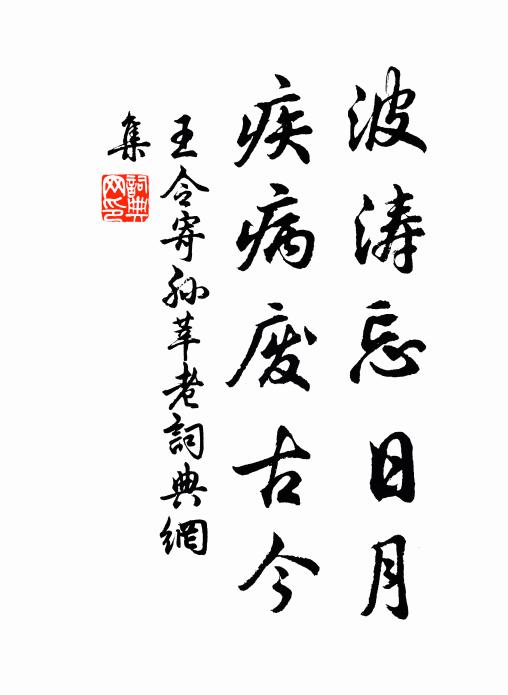 波涛忘日月
疾病废古今
王令寄孙莘老詞典網
集
詞典
网印